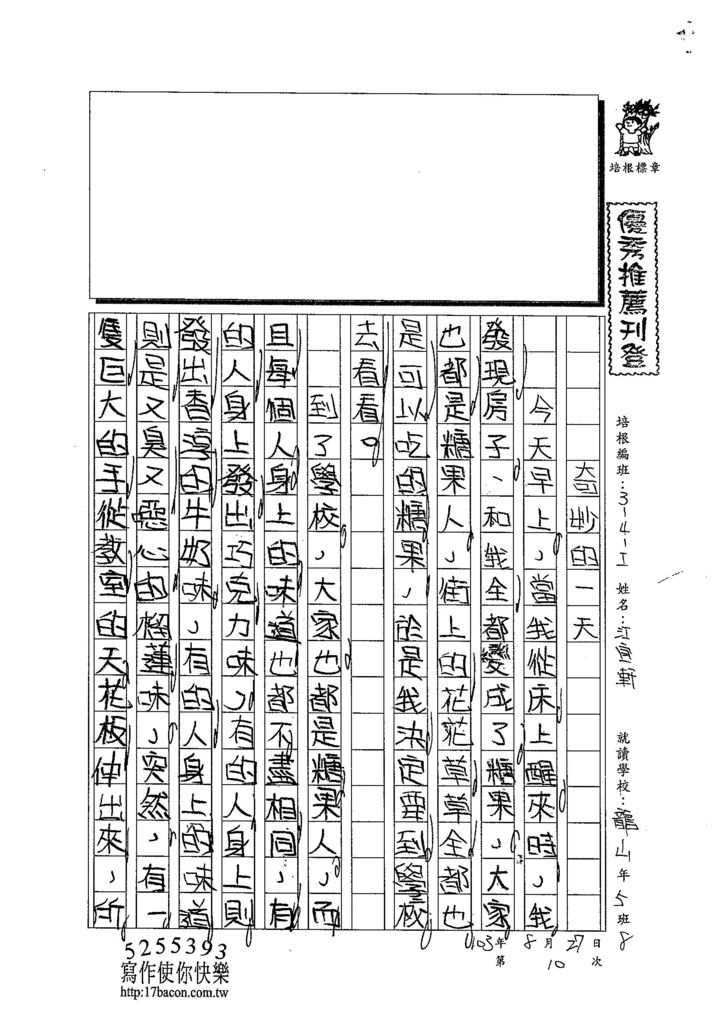 培根標章
優秀推薦刊登
培根編班：3-4-I 姓名：江宜軒 就讀學校：龍山 5年 8班
103年8月27日
第10次
奇妙的一天
今天早上，當我從床上醒來時，我
發現房子、和我全都變成了糖果，大家
也都是糖果人，街上的花花草草全都也
是可以吃的糖果，於是我決定要到學校
去看看。
到了學校，大家也都是糖果人，而
且每個人身上的味道也都不盡相同，有
的人身上發出巧克力味，有的人身上則
發出香淳的牛奶味，有的人身上的味道
則是又臭又噁心的榴蓮味，突然，有一
隻巨大的手從教室的天花板伸出來，所
5255393
寫作使你快樂
http:17bacon.com.tw